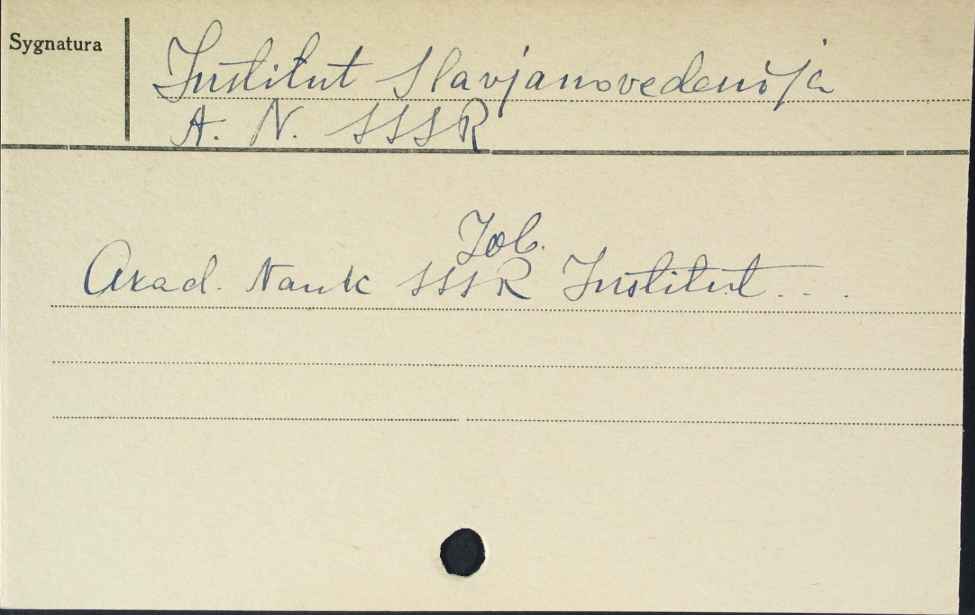 Sygnatura
Institut Slavjanovedenija
A. N. SSSR
Zob.
Akad. Nauk SSSR Institut...